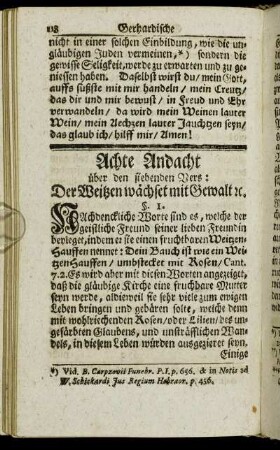 118 Gerhardische
nicht in einer solchen Einbildung, wie die un-
gläubigen Juden vermeinen,*) sondern die
gewisse Seligkeit, werde zu erwarten und zu ge-
niessen haben. Daselbst wirst du/ mein Gott,
auffs süßste mit mir handeln / mein Creutz/
das dir und mir bewust/ in Freud und Ehr
verwandeln/ da wird mein Weinen lauter
Wein/ mein Aechzen lauter Jauchtzen seyn/
das glaub ich/ hilff mir/ Amen!
Achte Andacht
über den siebenden Vers:
Der Weitzen wächset mit Gewalt ꝛc.
§. 1.
Nachdenckliche Worte sind es, welche der
geistliche Freund seiner lieben Freundin
beyleget, indem er sie einen fruchtbaren Weitzen-
Hauffen nennet: Dein Bauch ist wie ein Wei-
tzen-Hauffen/ umbstecket mit Rosen/ Cant.
7. 2. Es wird aber mit diesen Worten angezeiget,
daß die gläubige Kirche eine fruchtbare Mutter
seyn werde, aldieweil sie sehr viele zum ewigen
Leben bringen und gebären solte, welche denn
mit wohlriechenden Rosen/ oder Lilien/ des un-
gefärbten Glaubens, und unsträfflichen Wan-
dels, in diesem Leben würden ausgezieret seyn.
Einige
*) Vid. B. Carpzovii Funebr. P. I. p. 656. & in Notis ad
W. Schickardi Jus Regium Hebræor. p. 456.